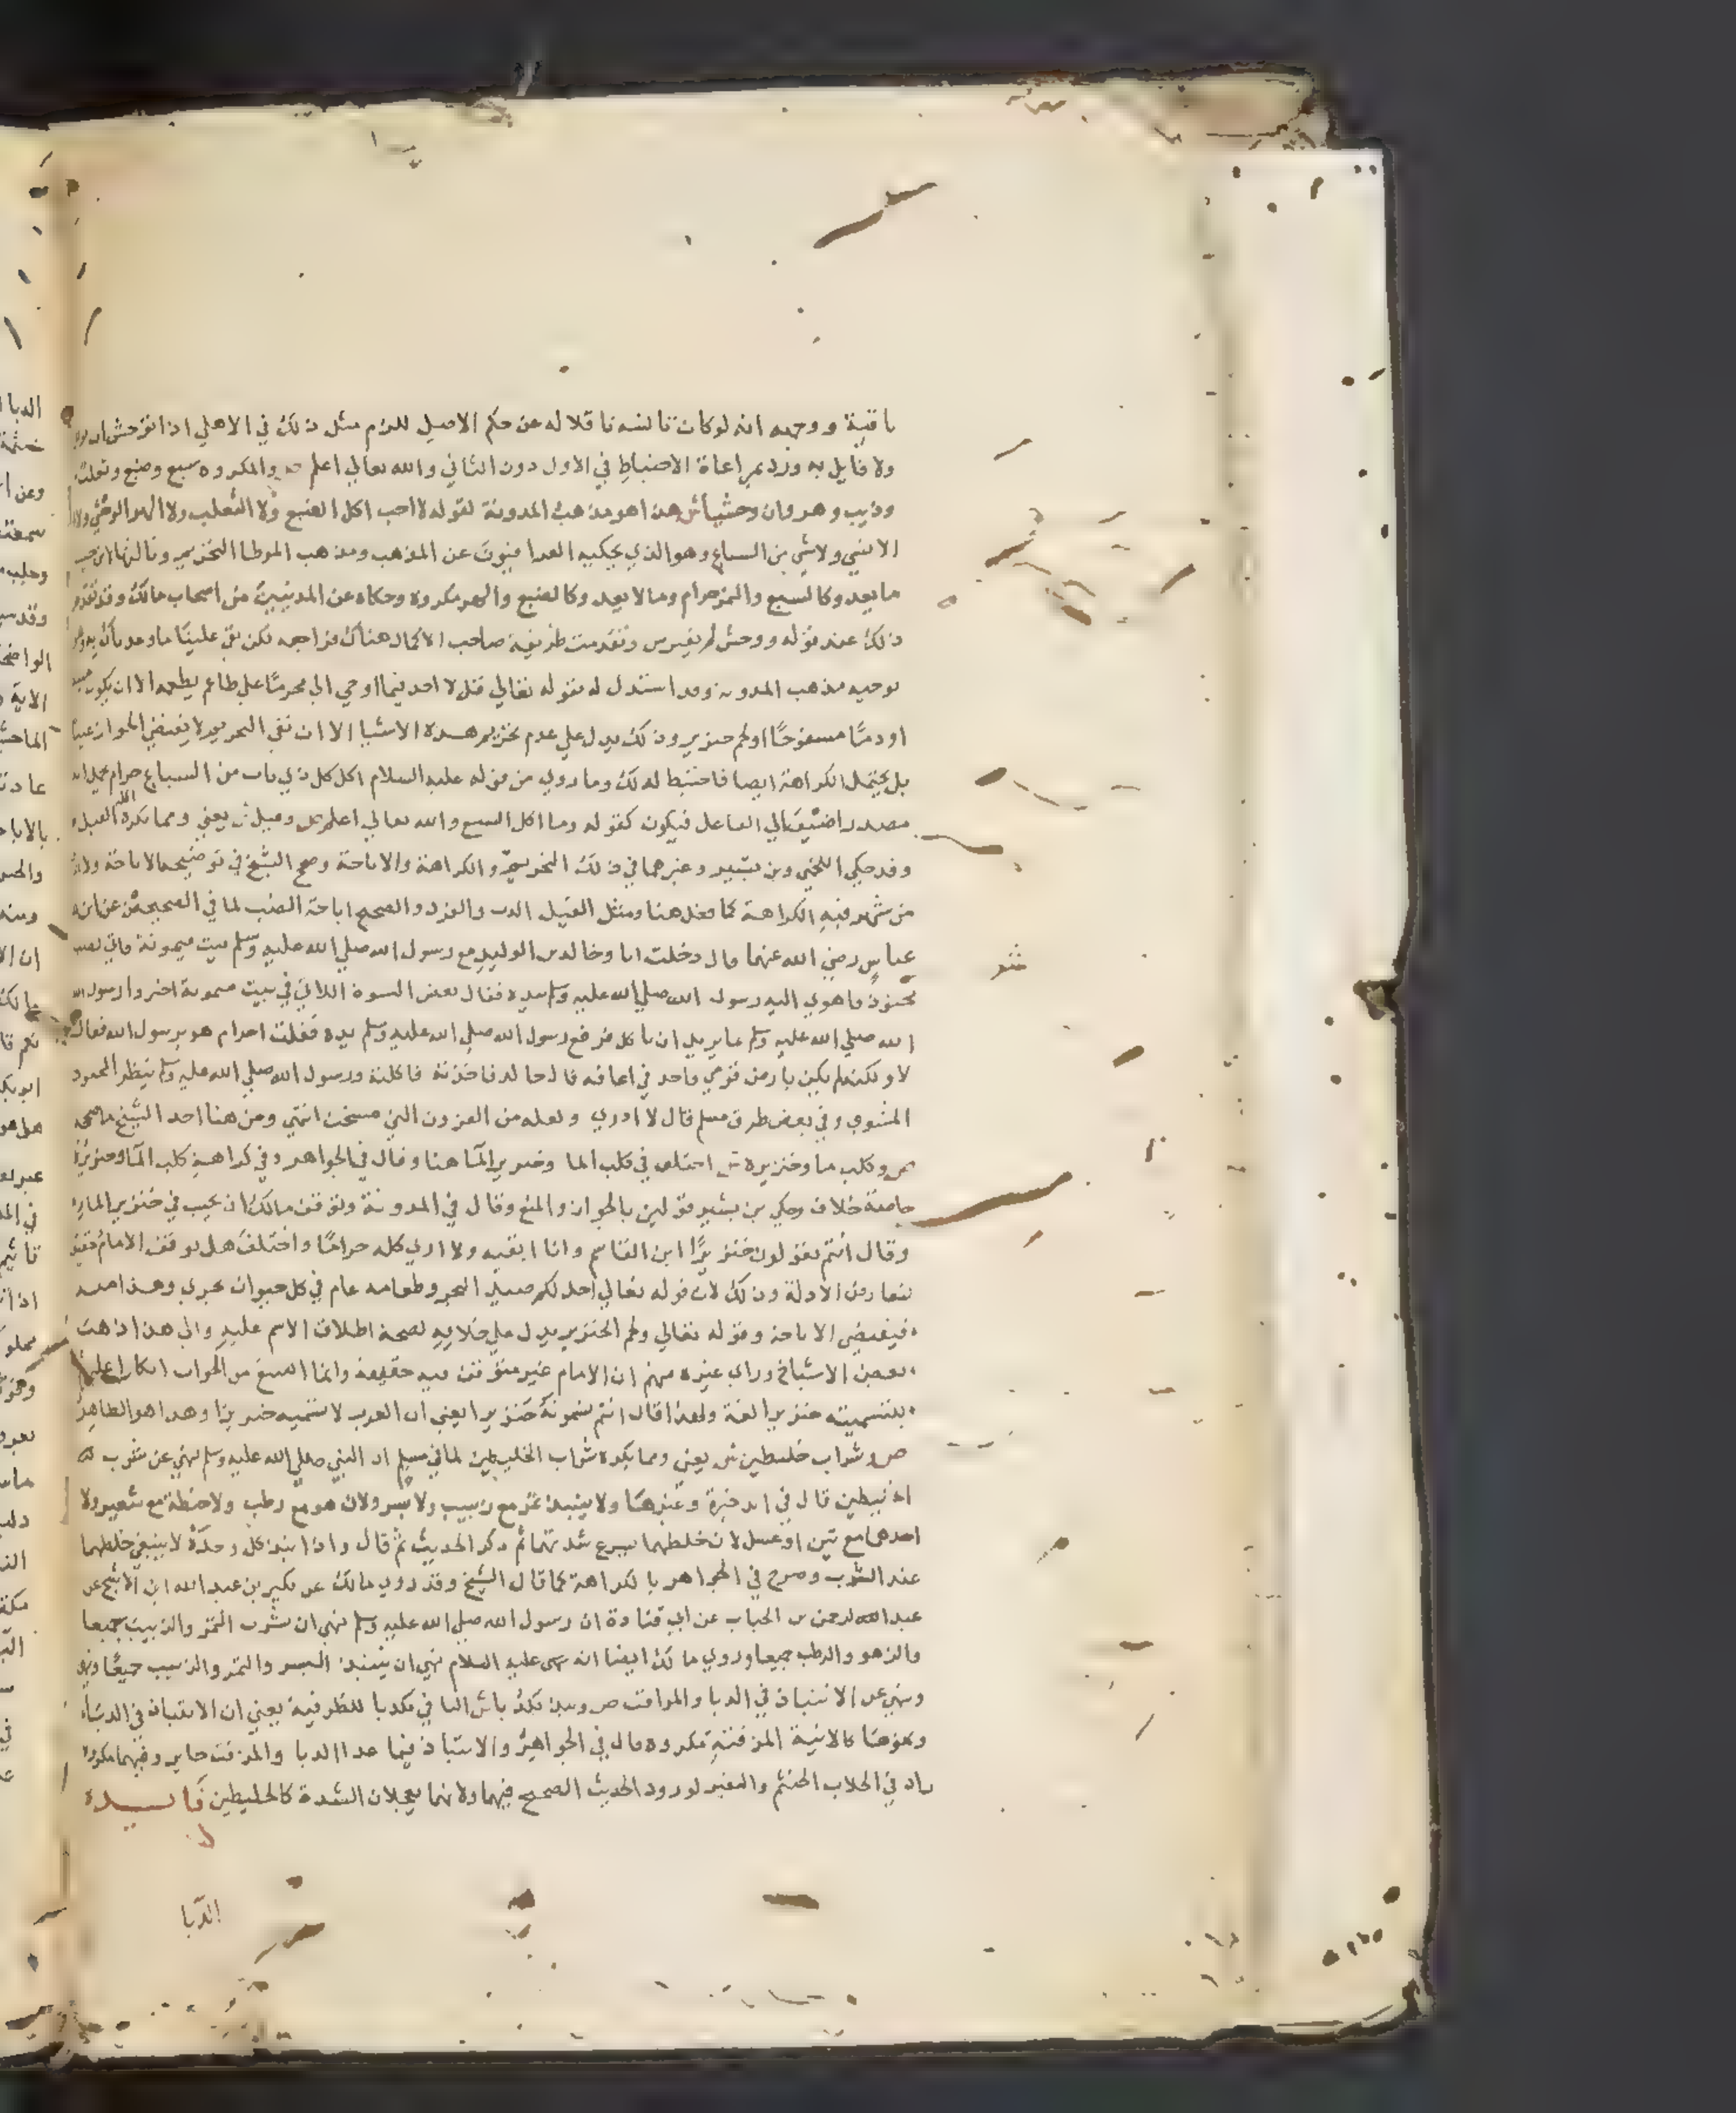 باقية ووجهه انه لوكان تانسه ناقلا له عن حكم الاصل للزم مثل ذلك في الاهلي اذا توحش
ولا قايل به ورد بمراعاة الاحتياط في الاول دون الثاني والله تعالي اعلم ص والمكروه سبع وضبع وثعلب
وذيب وهر وان وحشيا ش هذا هو مذهب المدونة لقوله لا احب اكل الضبع ولا الثعلب ولا الهر الوحشي ولا
الانسي ولا شي من السباع وهو الذي يحكيه العراقيون عن المذهب ومذهب الموطا التحريم وثالثها ابن حبيب
ما يعدو كالسبع والنمر حرام وما لا يعدو كالضبع والهر مكروه وحكاه عن المدنيين من اصحاب مالك وقد تقدم
ذلك عند قوله ووحش لم يفترس وتقدمت طريقة صاحب الاكمال هناك فراجعه لكن بقي علينا ما وعدناك به وهو
توجيه مذهب المدونة وقد استدل له بقوله تعالي قل لا اجد فيما اوحي الي محرما علي طاعم يطعمه الا ان يكون ميتة
او دما مسفوحا او لحم خنزير وذلك يدل علي عدم تحريم هذه الاشيا الا ان نفي التحريم لا يقتضي الجواز عينا
بل يحتمل الكراهة ايضا فاحتيط لذلك وما روي من قوله عليه السلام اكل كل ذي ناب من السباع حرام
مصدر اضيف الي الفاعل فيكون كقوله وما اكل السبع والله تعالي اعلم ص وفيل ش يعني ومما يكره اكله الفيل
وقد حكي اللخمي وبن بشير وغيرهما في ذلك التحريم والكراهة والاباحة وصحح الشيخ في توضيحه الاباحة
من شهر فيه الكراهة كما فعل هنا ومثل الفيل الدب والقرد والصحيح اباحة الضب لما في الصحيحين عن ابن
عباس رضي الله عنهما قال دخلت انا وخالد بن الوليد مع رسول الله صلي الله عليه وسلم بيت ميمونة فاتي بضب
محنوذ فاهوي اليه رسول الله صلي الله عليه وسلم بيده فقال بعض النسوة اللاتي في بيت ميمونة اخبروا رسول الله
الله صلي الله عليه وسلم بما يريد ان ياكل فرفع رسول الله صلي الله عليه وسلم يده فقلت احرام هو يرسول الله فقال
لا ولكنه لم يكن بارض قومي فاجد في اعافه قال خالد فاخذته فاكلته ورسول الله صلي الله عليه وسلم ينظر المحنوذ
المشوي وفي بعض طرق مسلم قال لا ادري ولعله من القرون التي مسخت انتهي ومن هنا اخذ الشيخ ما صححه
ص وكلب ما وخنزيره ش اختلف في كلب الما وخنزير الما هنا وقال في الجواهر وفي كراهية كلب الما وخنزيره
خلاف وحكي بن بشير قولين بالجواز والمنع وقال في المدونة وتوقف مالك ان يجيب في خنزير الما
وقال انتم تقولون خنزيرا ابن القاسم وانا اتقيه ولا اري كله حراما واختلف هل توقف الامام حقيقة
لتعارض الادلة وذلك لان قوله تعالي احل لكم صيد البحر وطعامه عام في كل حيوان بحري وهذا
فيقتضي الاباحة وقوله تعالي ولحم الخنزير يدل علي خلافه لصحة اطلاق الاسم عليه والي هذا ذهب
بعض الاشياخ وراي غيره منهم ان الامام غير متوقف فيه حقيقة وانما امتنع من الجواب انكارا عليهم
بتسميته خنزيرا لغة ولهذا قال انتم تسمونه خنزيرا يعني ان العرب لا تسميه خنزيرا وهذا هو الظاهر
ص وشراب خليطين ش يعني ومما يكره شراب الخليطين لما في مسلم ان النبي صلي الله عليه وسلم نهي عن شرب
قال في الذخيرة وغيرها ولا ينبذ تمر مع زبيب ولا بسر ولا زهو مع رطب ولا حنطة مع شعير ولا
احدهما مع تين او عسل لان خلطهما يسرع شدتهما ثم ذكر الحديث ثم قال واذا نبذ كل وحده لا ينبغي خلطهما
عند الشرب وصرح في الجواهر بالكراهة كما قال الشيخ وقد روي مالك عن بكير بن عبدالله ابن الاشج عن
عبدالرحمن بن الحباب عن ابي قتادة ان رسول الله صلي الله عليه وسلم نهي ان يشرب التمر والزبيب جميعا
والزهو والرطب جميعا وروي مالك ايضا انه عليه السلام نهي ان ينبذ البسر والتمر والزبيب جميعا
ونهي عن الانتباذ في الدبا والمزفت ص ونبذ بكدبا ش البا في بكدبا للظرفية يعني ان الانتباذ في الدباء
ونحوها كالانية المزفتة مكروه قال في الجواهر والانتباذ فيما عدا الدبا والمزفت جايز وفيهما مكروه
زاد في الجلاب الحنتم والمقير لورود الحديث الصحيح فيهما ولانهما يعجلان الشدة كالخليطين فايدة
الدبا